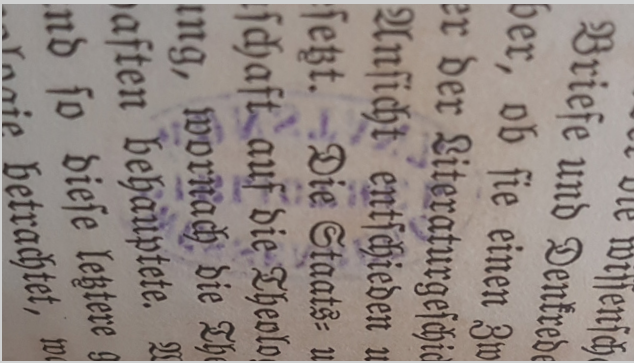 die wissensch
Briefe und Denkred
ber, ob sie einen Zw
er der Literaturgeschic
Ansicht entschieden
setzt. Die Staats= u
schaft auf die Theolo
ung, wornach die The
haften behauptete.
nd so diese letztere g
ologie betrachtet, w